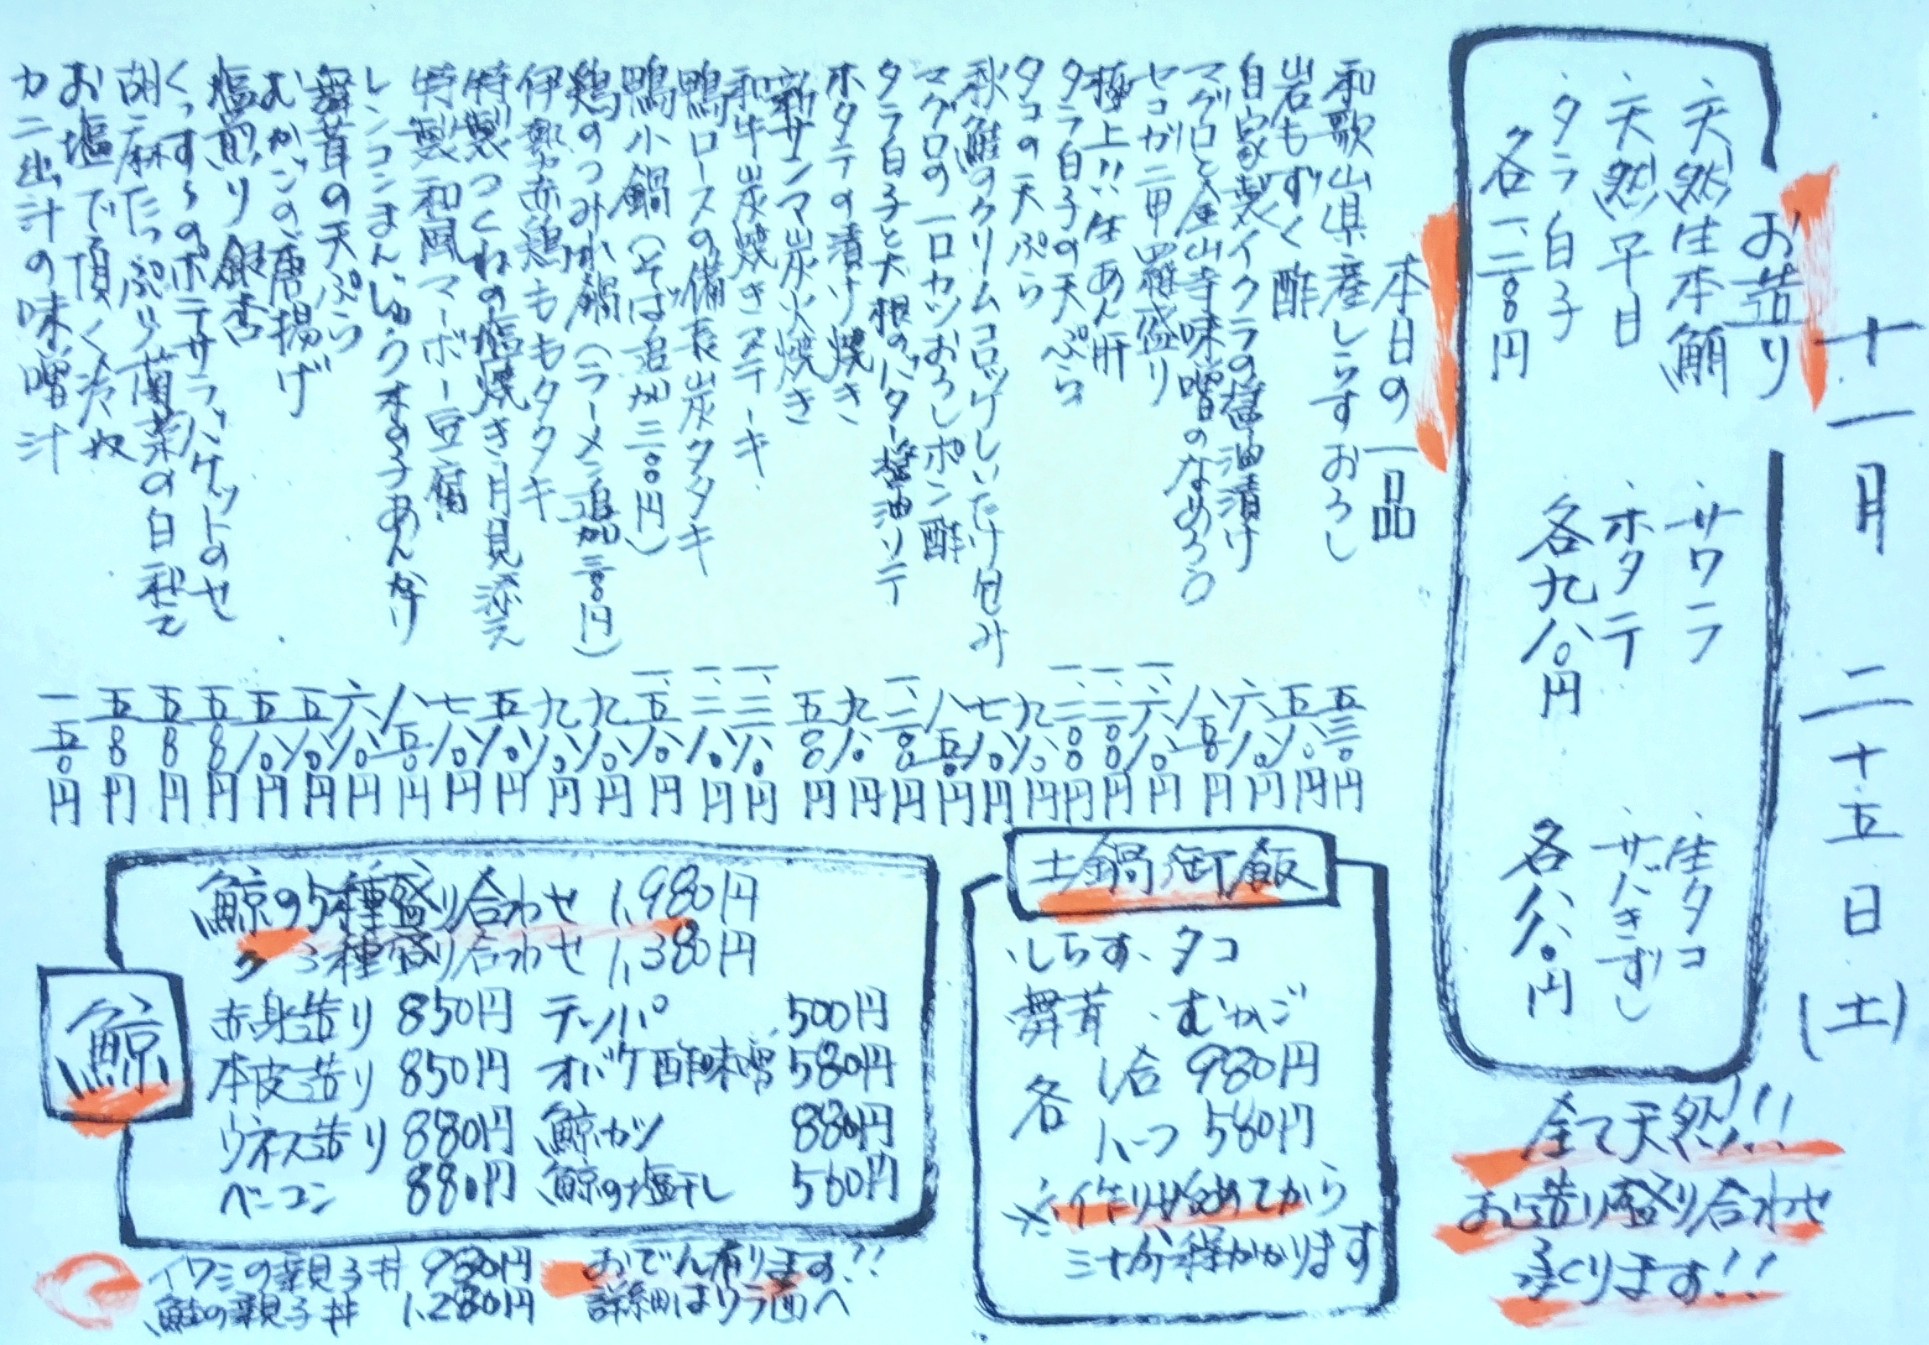 十一月二十五日(土)
お造り
・天然生本鮪
・天然平目
・タラ白子
各一、二〇〇円
・サワラ
・ホタテ
各九八〇円
・生タコ
・サバきずし
各八八〇円
全て天然!!!
お造り盛り合わせ
承ります!!
本日の一品
和歌山県産しらすおろし
岩もずく酢
自家製イクラの醤油漬け
マグロと金山寺味噌のなめろう
セコガニ甲羅盛り
極上!!生あん肝
タラ白子の天ぷら
タコの天ぷら
秋鮭のクリームコロッケしいたけ包み
マグロの一口カツおろしポン酢
タラ白子と大根のバター醤油ソテー
ホタテの漬け焼き
新サンマ炭火焼き
和牛炭焼きステーキ
鴨ロースの備長炭タタキ
鴨小鍋(そば追加三〇〇円)
鶏のつみれ鍋(ラーメン追加三〇〇円)
伊勢赤鶏ももタタキ
特製つくねの塩焼き月見添え
特製和風マーボー豆腐
レンコンまんじゅう木の子あんかけ
舞茸の天ぷら
むかごの唐揚げ
塩煎り銀杏
くっすぅのポテサラバケットのせ
胡麻たっぷり菊菜の白和え
お塩で頂く冷奴
カニ出汁の味噌汁
五八〇円
六八〇円
八五〇円
九八〇円
七八〇円
八五〇円
九八〇円
五八〇円
九八〇円
九八〇円
五八〇円
七八〇円
八五〇円
六八〇円
五八〇円
五八〇円
五〇〇円
五〇〇円
五〇〇円
一五〇円
土鍋御飯
・しらす・タコ
舞茸・むかご
各 1合 980円
ハーフ 580円
※作り始めてから
三十分程かかります
鯨
鯨の5種盛り合わせ 1,980円
〃 3種盛り合わせ 1,380円
赤身造り 850円 テッパ 500円
本皮造り 850円 オバケ酢味噌 580円
ウネス造り 880円 鯨カツ 880円
ベーコン 880円 鯨の塩干し 560円
イワシの親子丼 980円
鮭の親子丼 1,280円
おでん有ります!!
詳細はウラ面へ